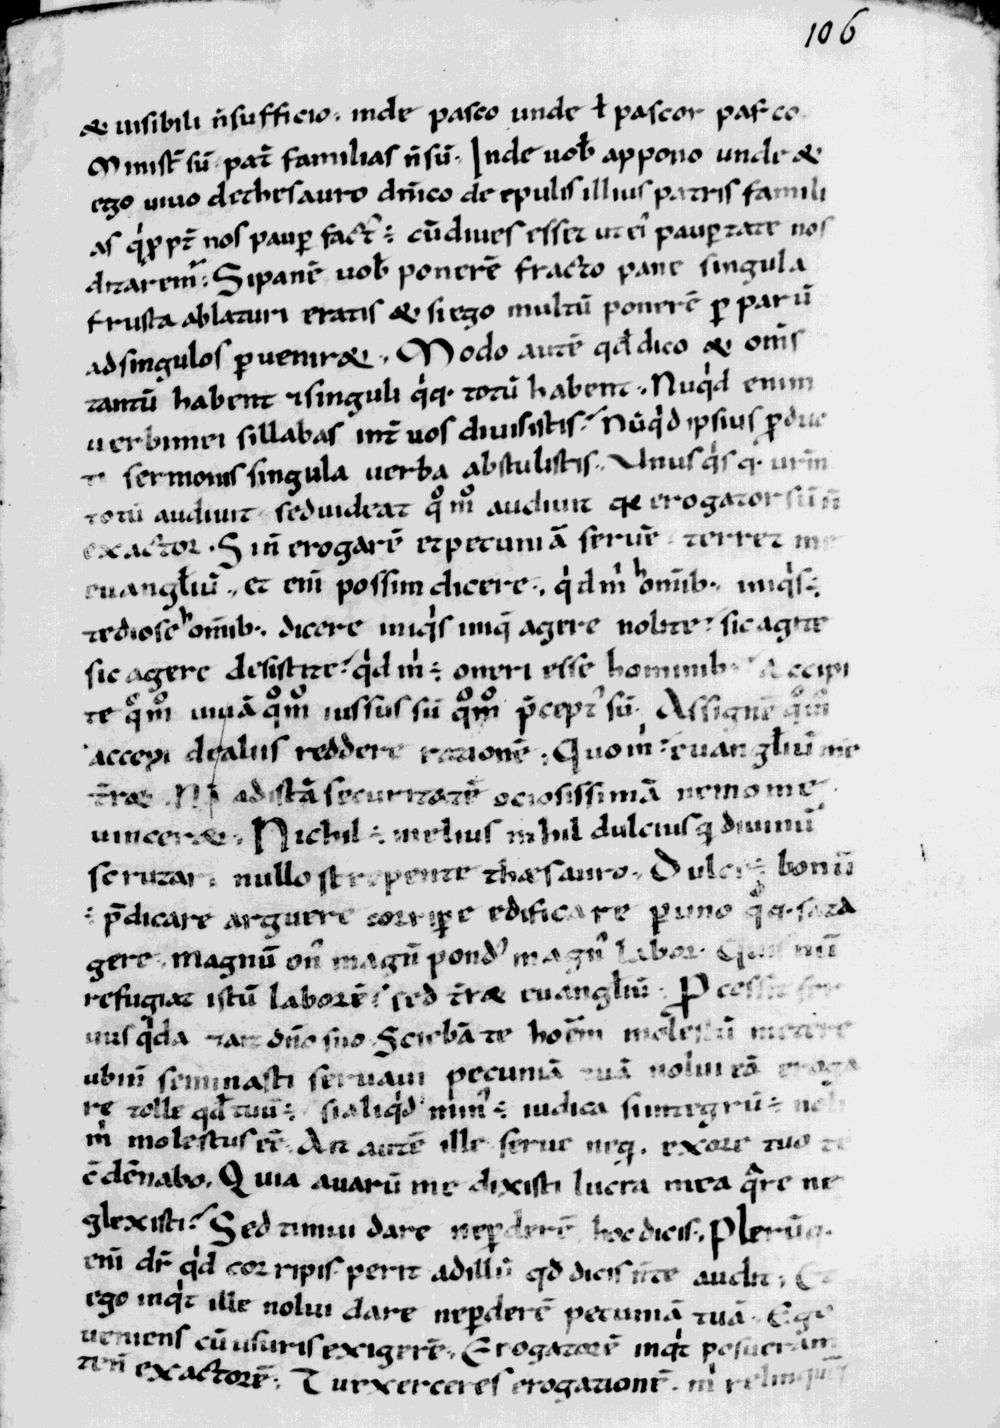 106
& uisibili n̄ sufficio. inde pasco unde ł pascor pasco
Minist̄ sū pat̄ familias n̄ sū. Inde uob̄ appono unde &
ego uiuo de thesauro dn̄ico de epulis illius patris famili
as q̓ ꝓpt̄ nos paup̄ fact᷒ ÷ cū diues esset ut ei᷒ paup̄tate nos
ditarem᷒. Si panē uob̄ ponerē fracto pane singula
frusta ablaturi eratis & si ego multū ponerē p̄ parū
ad singulos p̄uenir&. Modo autē qđ dico & om̄s
tantū habent & singuli q̓q. totū habent. Nūq̓d enim
uerbi mei sillabas int̄ uos diuisistis? Nūq̓d ipsius p̄duc
ti sermonis singula uerba abstulistis. Unusq̓sq. ur̄m
totū audiuit sed uideat q̊m̊ audiuit qꝛ erogator sū n̄
exactor. Si n̄ erogarē et pecuniā seruē terret me
euangl̄iū. et eni᷒ possim dicere. q̓d m̓ hom̄ib. iniq̓s:
tedio se hom̄ib. dicere iniq̓s iniq̄ agere nolite? sic agite
sic agere desistite? q̓d m̓ ÷ oneri esse hominib. Accipi
te q̊m̊ uiuā q̊m̊ iussus sū q̊m̊ p̄cept᷒ sū. Assignē q̊m̊
accepi de aliis reddere rationē. Quo m̓? euangl̄iū me
t̄r&. Nā ad istā securitatē ociosissimā nemo me
uincer&. Nichil ÷ melius nihil dulcius q̄ diuinū
scrutari nullo strepente thæsauro. Dulce ÷ bonū
÷ p̄dicare arguere corripe edificare p̄ uno q̊q. sata
gere. magnū on᷒ magn̄ pond᷒ magn᷒ labor. Quis n̄
refugiat istū laborē? sed t̄r& euangl̄iū. Pcessit ser
uus q̓da tait dn̄o suo. Sciebā te hoēm molestū metere
ubi n̄ seminasti seruaui pecuniā tuā nolui eā eroga
re tolle qđ tuū ÷ si aliq̓d min᷒ ÷ iudica si integrū ÷ noli
m̓ molestus eē. At autē ille serue neq. ex ore tuo te
c̄dēnabo. Quia auarū me dixisti lucra mea q̄re ne
glexisti? Sed timui dare ne p̄derē hoc dicis. Plerūq.
eni᷒ dr̄ q̓d corripis perit ad illū qđ dicis n̄ te audit. Et
ego inq̓t ille nolui dare ne p̄derē pecuniā tuā. Ego
ueniens cū usuris exigerē. Erogatorē inq̓t posueram
te n̄ exactorē. Tu exerceres erogationē. m̓